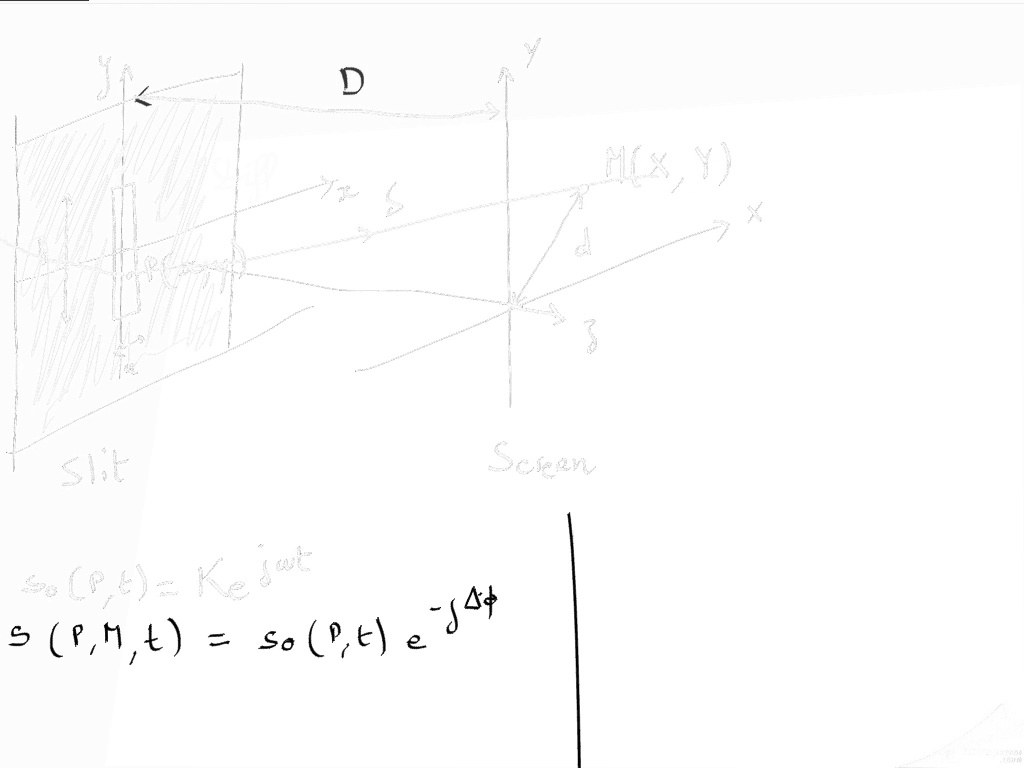 y
D
Y
M(X, Y)
z
s
x
d
P(x,y)
z
Slit
Screen
so(P,t) = K e^jωt
s(P,M,t) = so(P,t) e^-jΔϕ